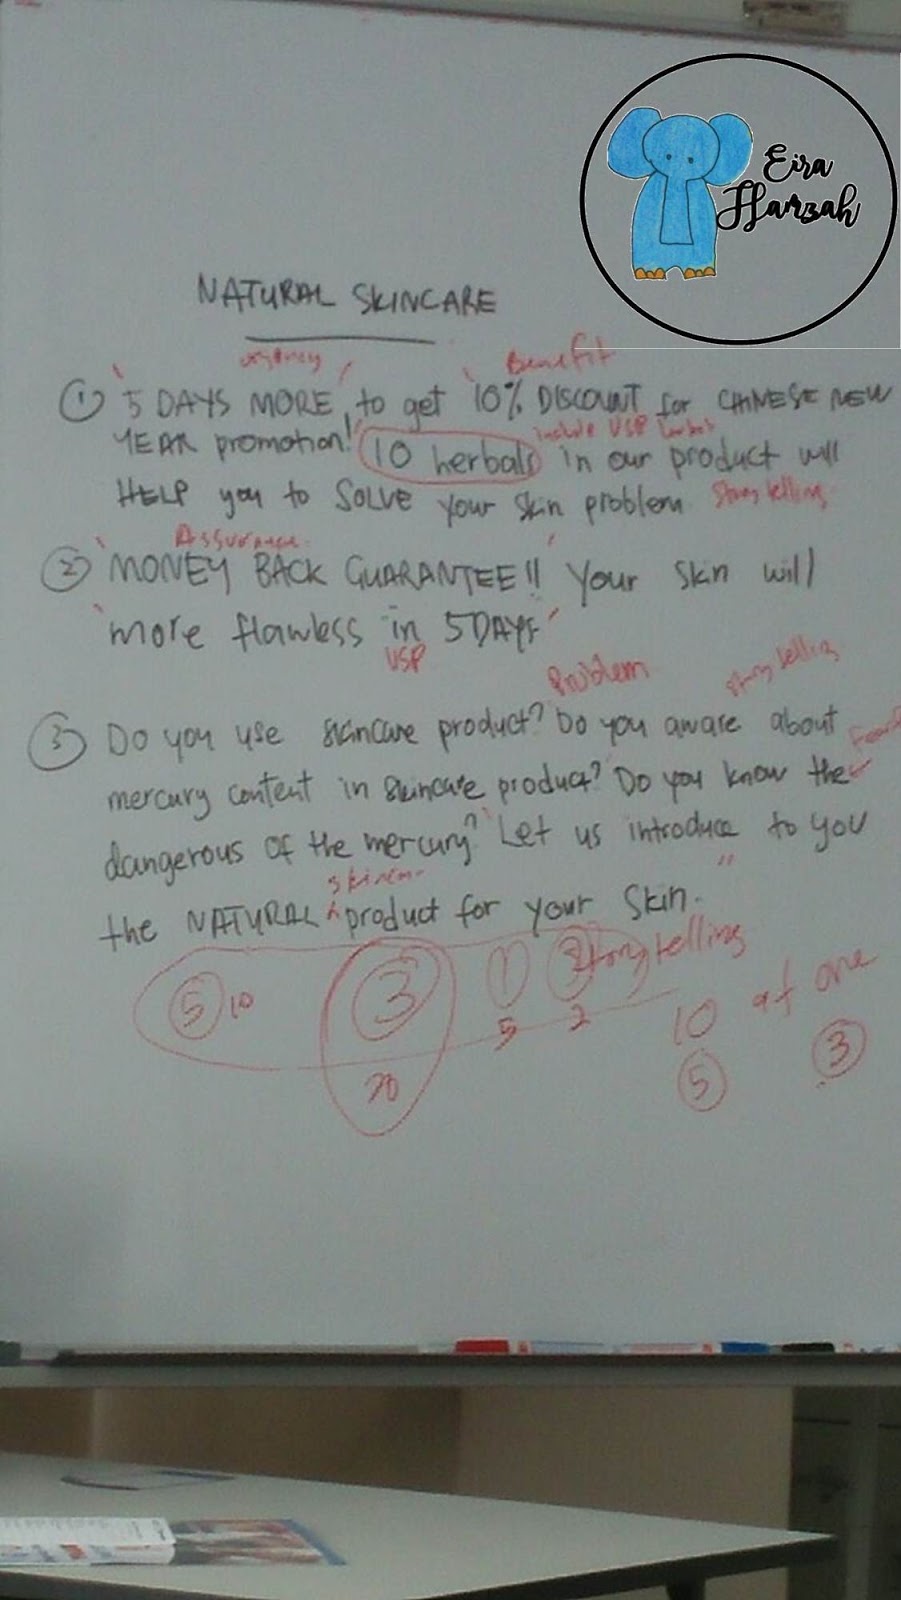 Eira
Hamzah
NATURAL SKINCARE
urgency Benefit
① '5 DAYS MORE' to get '10% DISCOUNT for CHINESE NEW
include USP herbals
YEAR promotion!' 10 herbals in our product will
HELP you to SOLVE your skin problem. Story telling
Assurance
② 'MONEY BACK GUARANTEE!!' Your skin will
'more flawless in 5 DAYS'
USP
Problem story telling
③ Do you use skincare product? 'Do you aware about
mercury content in skincare product?' 'Do you know the
dangerous of the mercury?' Let us introduce to you
the NATURAL product for your skin."
storytelling
⑤ 10 ③ ① ③
20 5 2
10 at one
⑤ ③